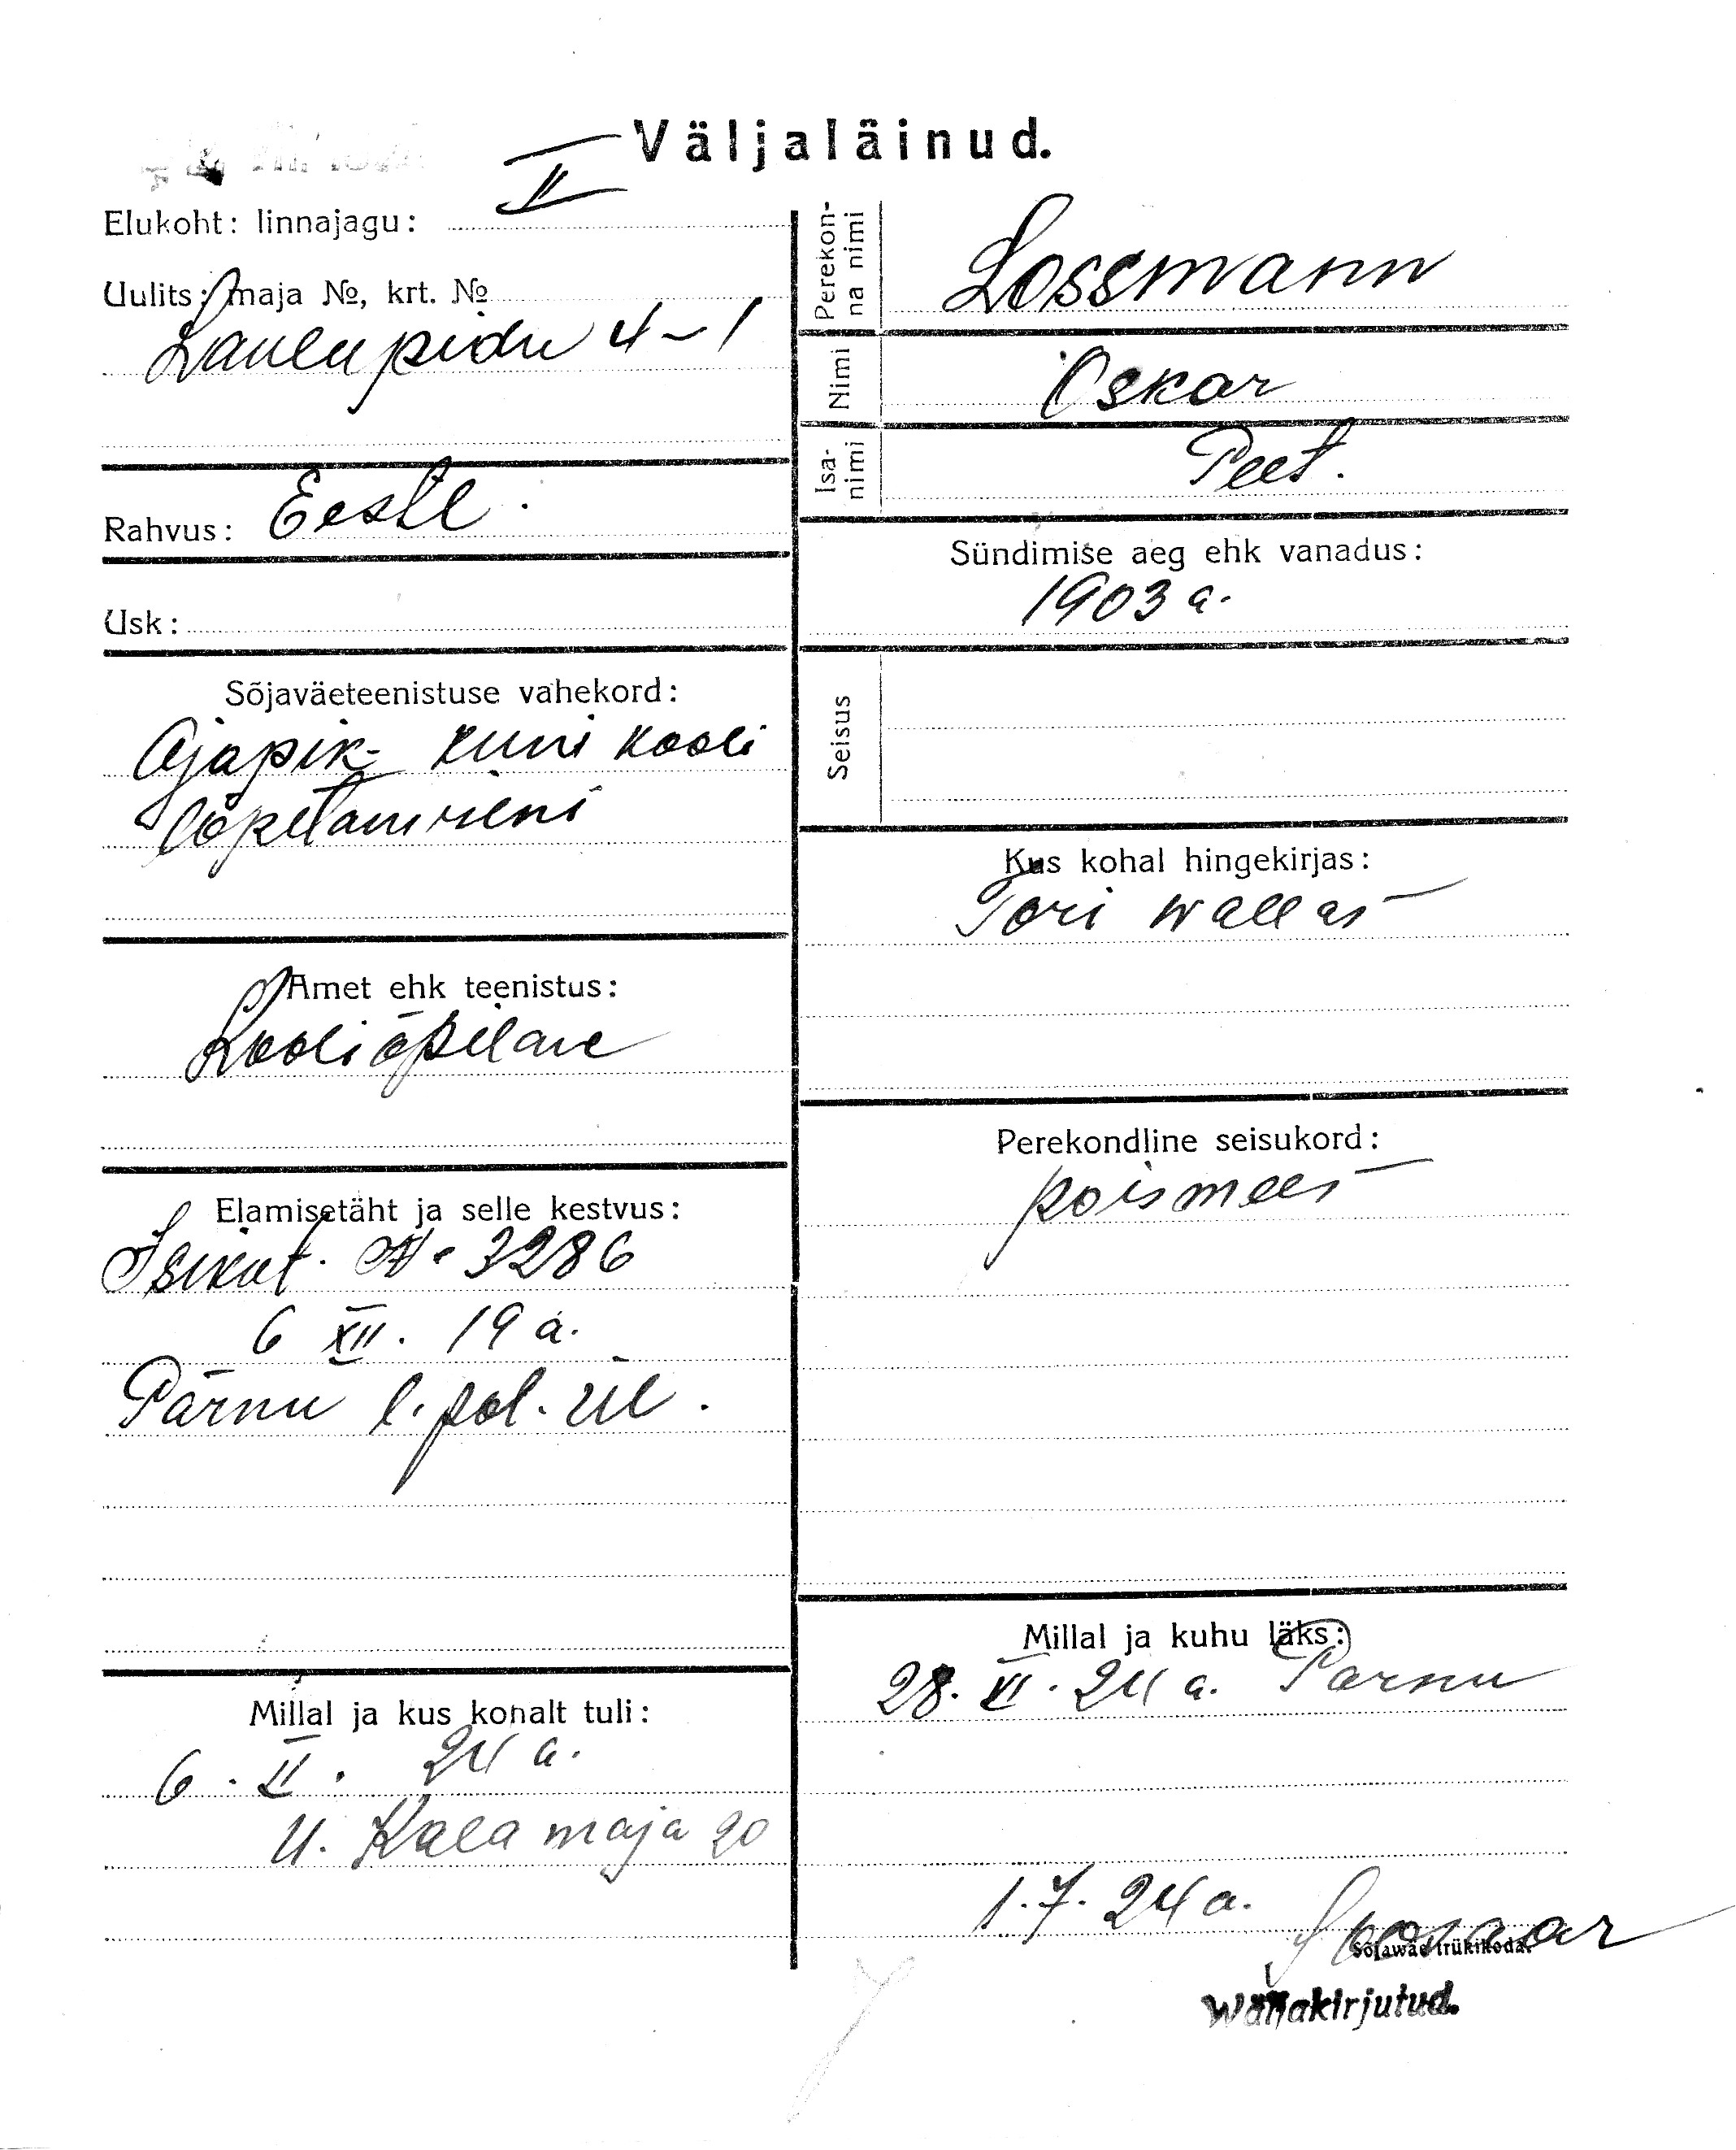 Väljaläinud.
Elukoht: linnajagu: II
Uulits: maja №, krt. №
Laulupidu 4-1
Rahvus: Eesti.
Usk:
Sõjaväeteenistuse vahekord:
Ajapik- kuni kooli
lõpetamiseni
Amet ehk teenistus:
Kooliõpilane
Elamisetäht ja selle kestvus:
Isikut. № 3286
6 XII. 19 a.
Pärnu l. pol. ül.
Millal ja kus kohalt tuli:
6. II. 24 a.
U. Kalamaja 20
Perekonna nimi
Lossmann
Nimi
Oskar
Isanimi
Peet.
Sündimise aeg ehk vanadus:
1903 a.
Seisus
Kus kohal hingekirjas:
Tori wallas
Perekondline seisukord:
poismees
Millal ja kuhu läks:
28. VI. 24 a. Pärnu
1.7.24 a.
Sõjawäe trükikoda.
Wäljakirjutud.